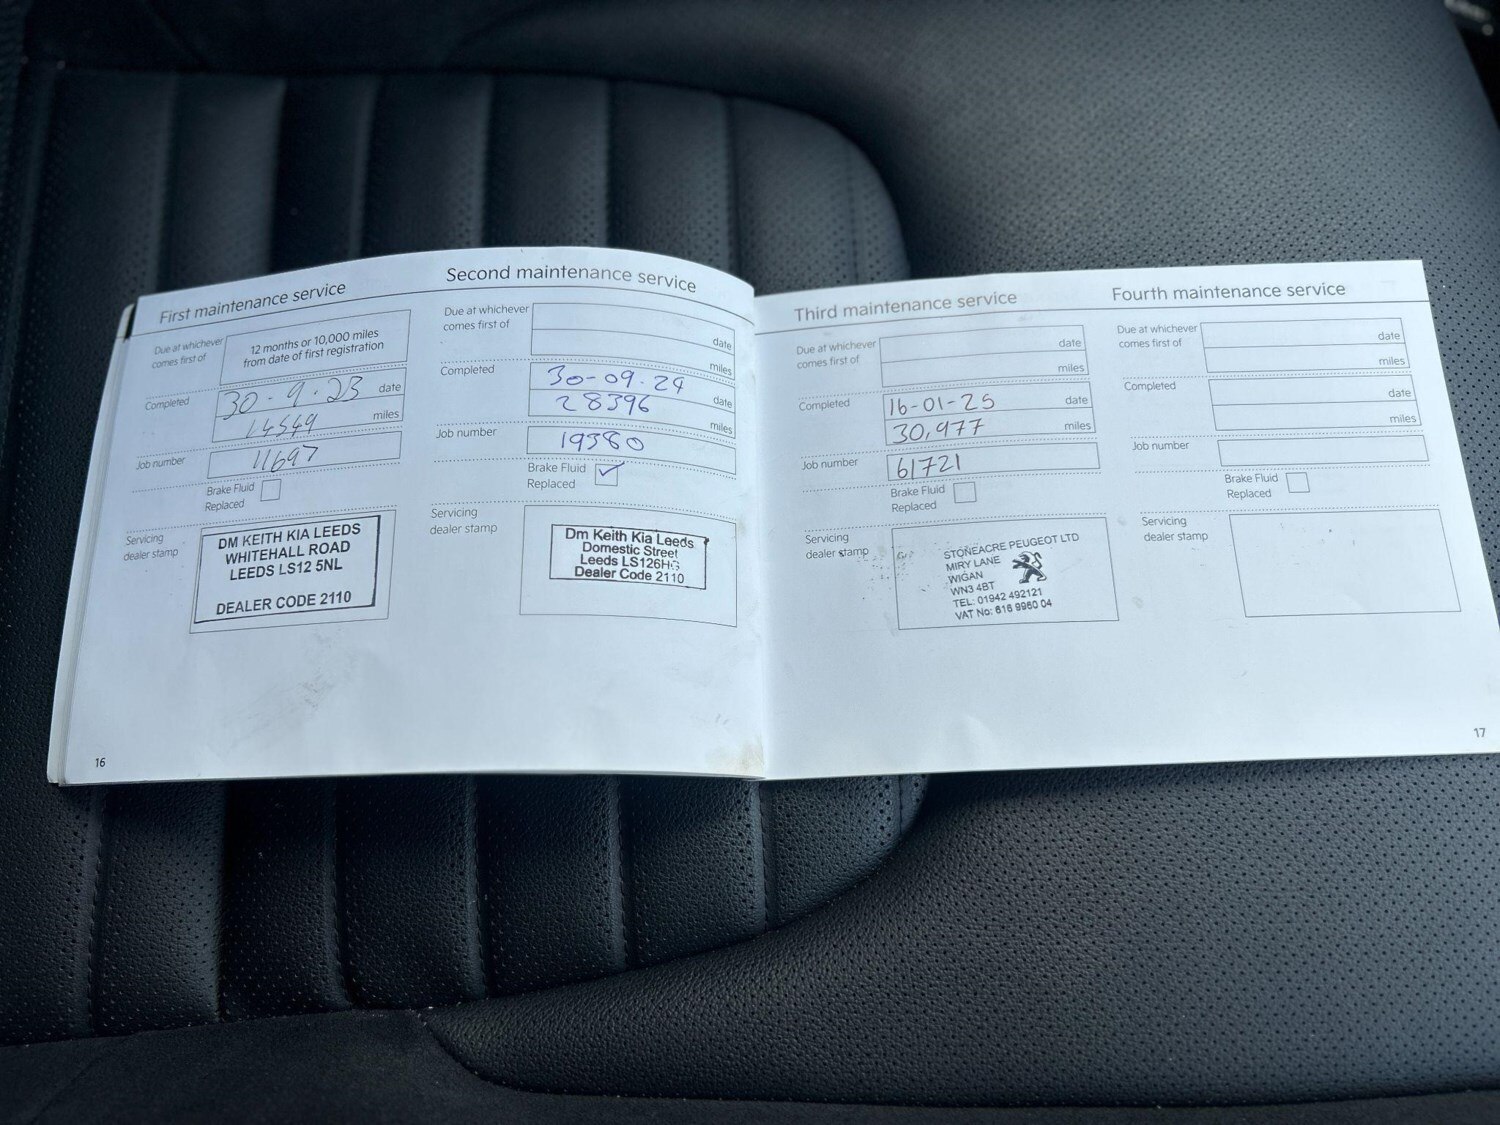 First maintenance service
Due at whichever
comes first of
12 months or 10,000 miles
from date of first registration
Completed
30-9.23 date
14549 miles
Job number
11697
Brake Fluid
Replaced
Servicing
dealer stamp
DM KEITH KIA LEEDS
WHITEHALL ROAD
LEEDS LS12 5NL
DEALER CODE 2110
16
Second maintenance service
Due at whichever
comes first of
date
miles
Completed
30-09.24
date
28396
miles
Job number
19380
Brake Fluid
Replaced
Servicing
dealer stamp
Dm Keith Kia Leeds
Domestic Street
Leeds LS126HG
Dealer Code 2110
Third maintenance service
Due at whichever
comes first of
date
miles
Completed
16-01-25 date
30,977 miles
Job number
61721
Brake Fluid
Replaced
Servicing
dealer stamp
STONEACRE PEUGEOT LTD
MIRY LANE
WIGAN
WN3 4BT
TEL: 01942 492121
VAT No: 616 9960 04
Fourth maintenance service
Due at whichever
comes first of
date
miles
Completed
date
miles
Job number
Brake Fluid
Replaced
Servicing
dealer stamp
17